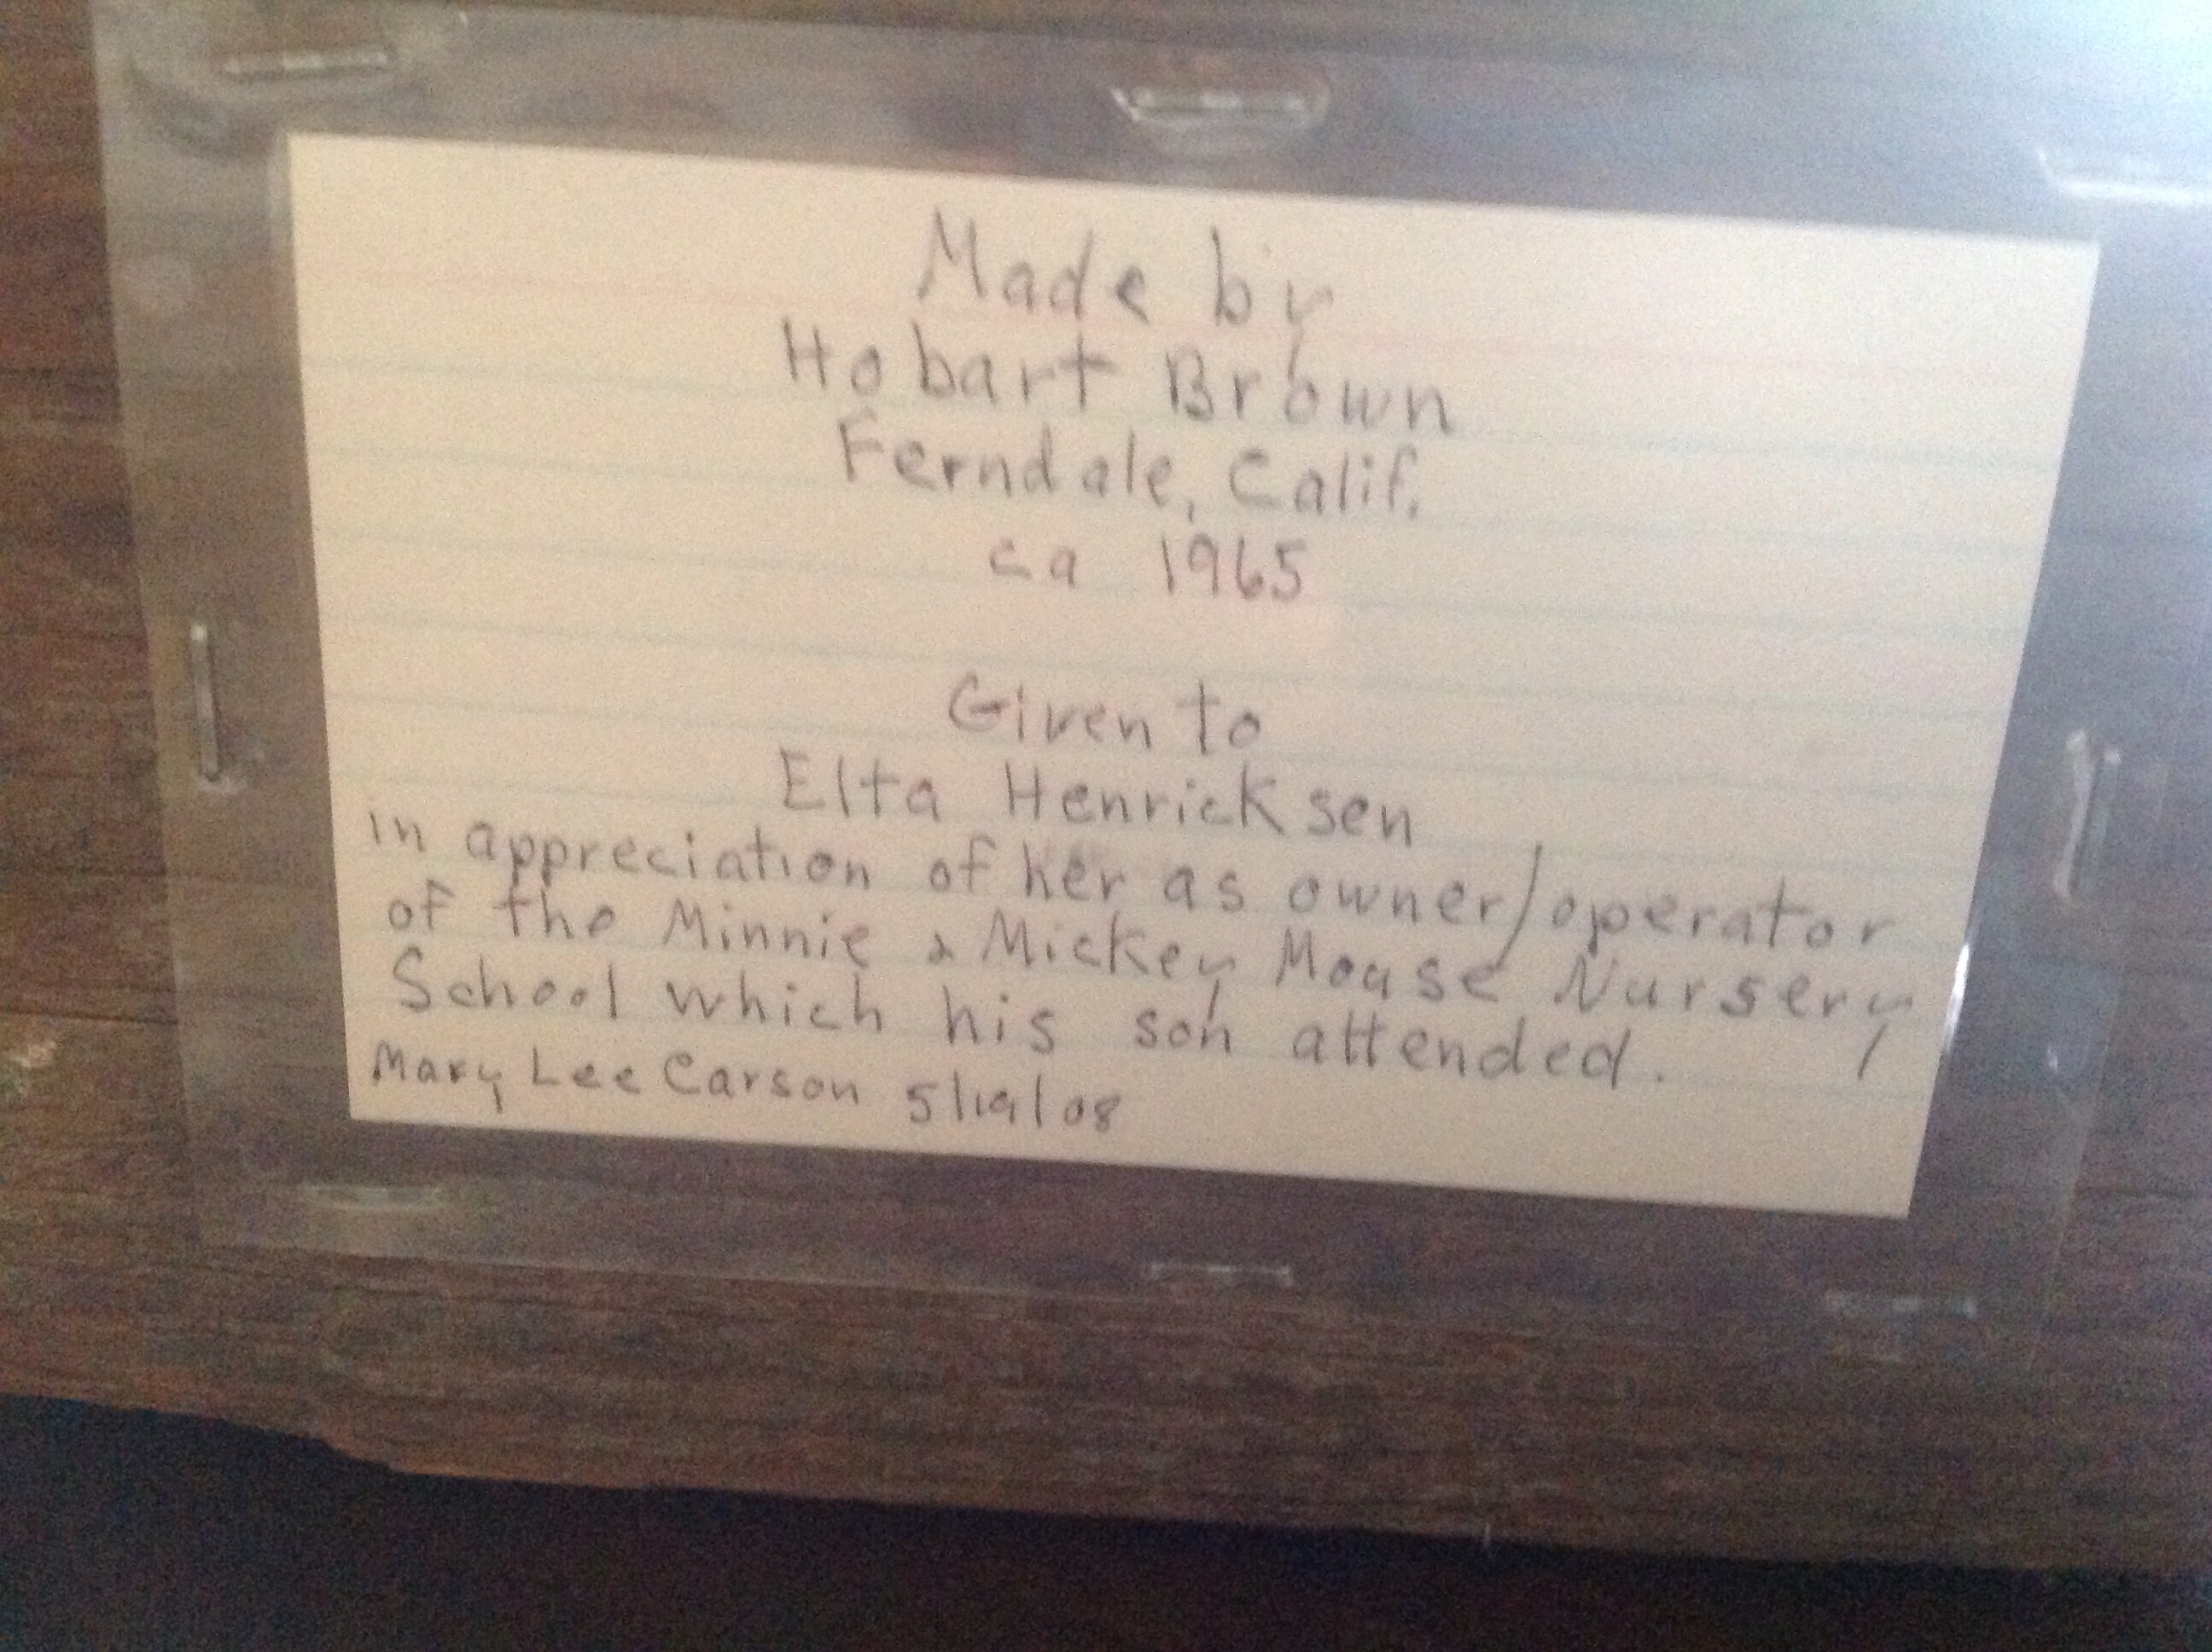 Made by
Hobart Brown
Ferndale, Calif.
ca 1965
Given to
Elta Henricksen
in appreciation of her as owner/operator
of the Minnie & Mickey Mouse Nursery
School which his son attended.
Mary Lee Carson 5/19/08